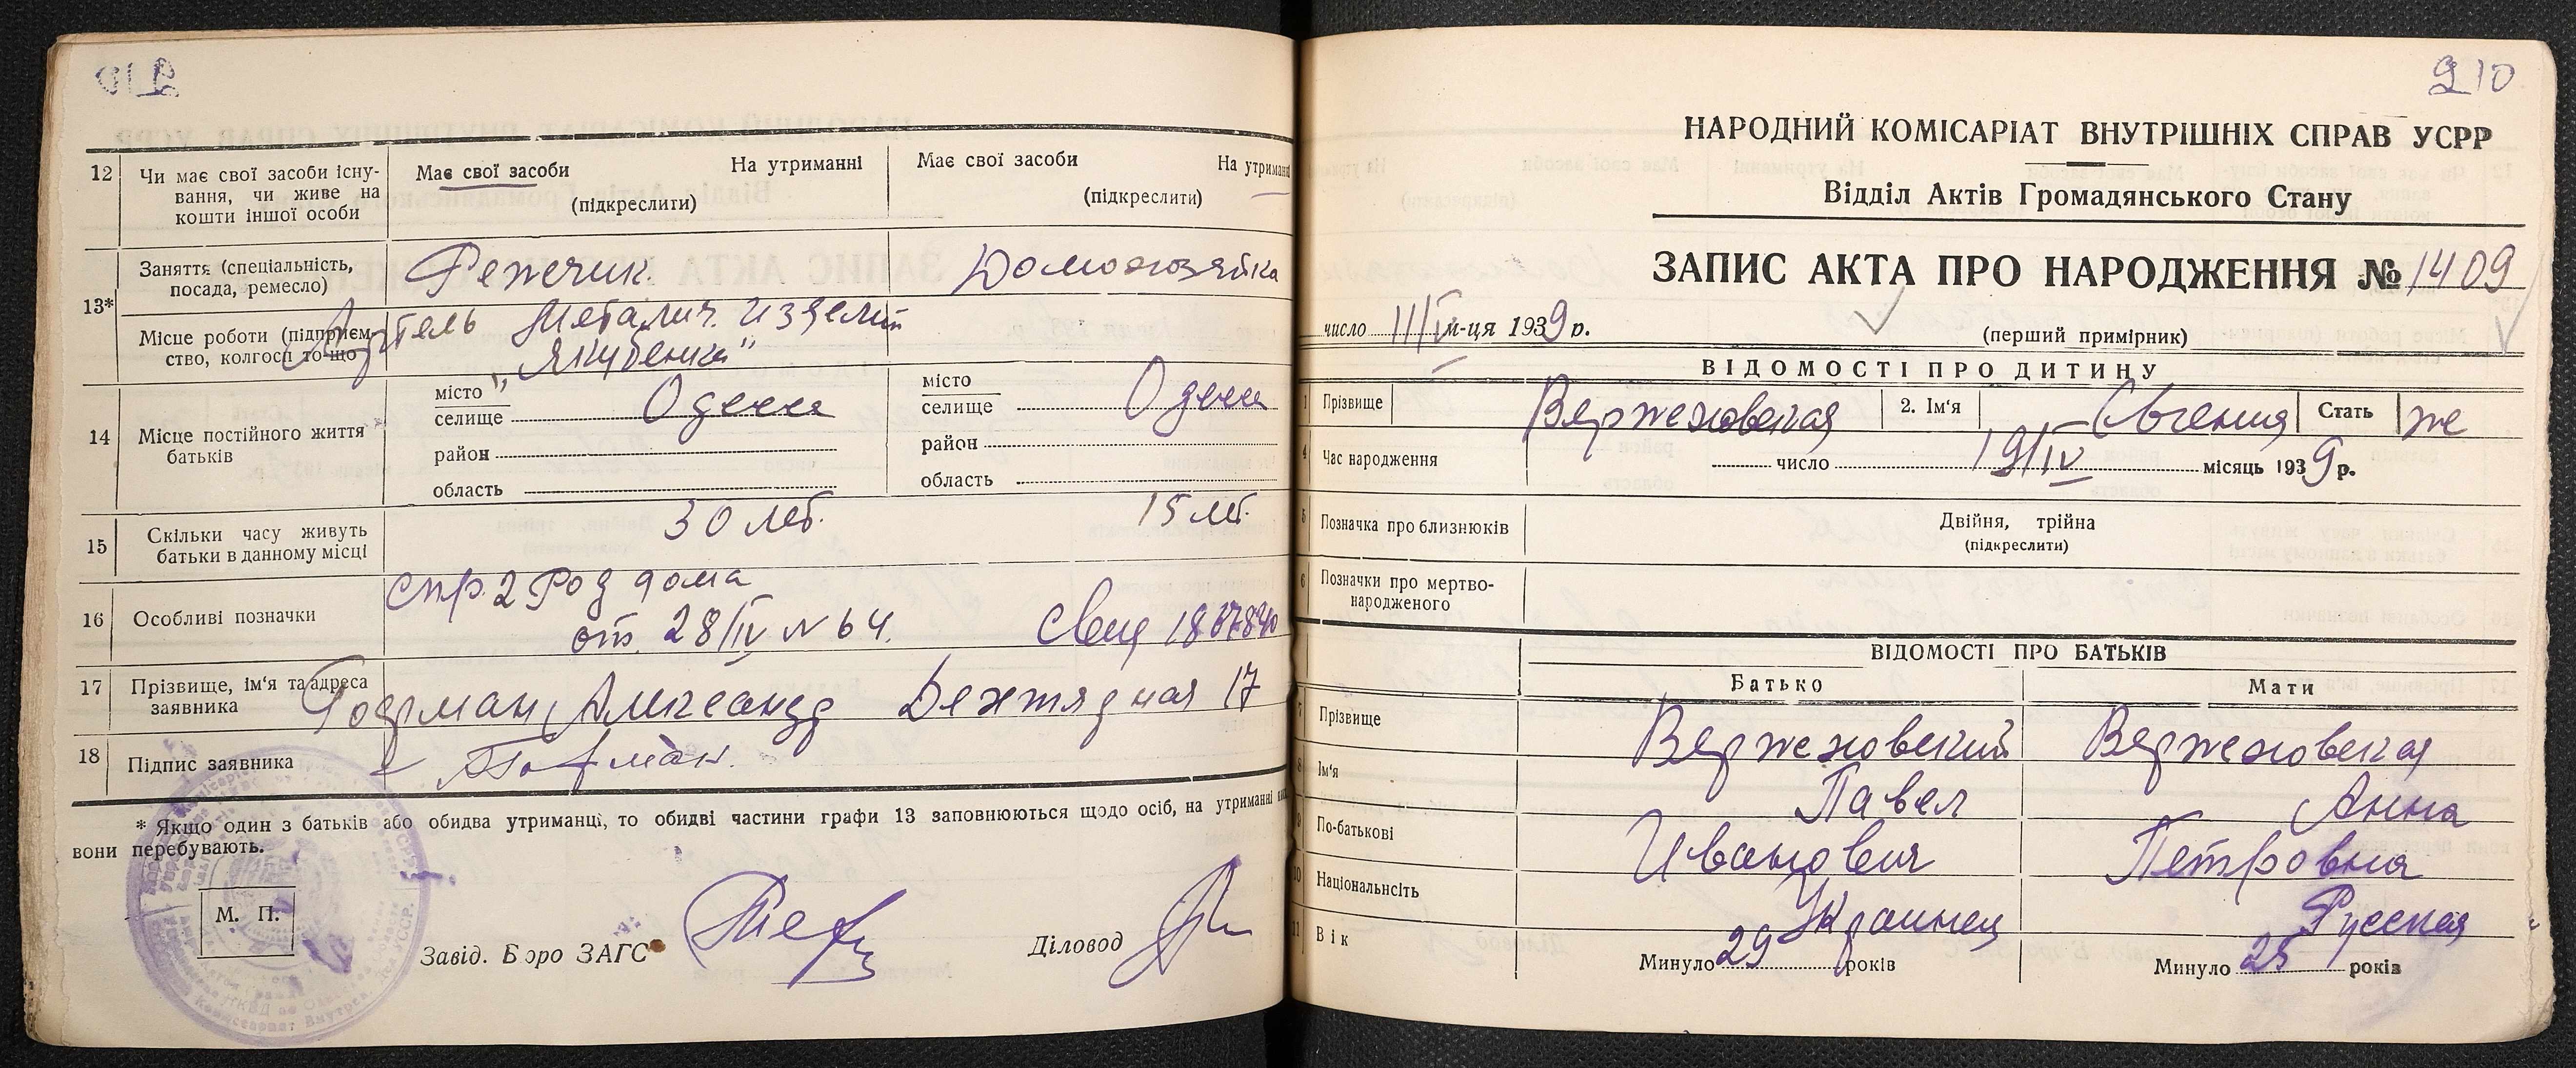 12 Чи має свої засоби існу-
вання, чи живе на
кошти іншої особи
Має свої засоби На утриманні
(підкреслити)
Має свої засоби На утриманні
(підкреслити)
13* Заняття (спеціальність,
посада, ремесло)
Домохозяйка
Місце роботи (підприєм-
ство, колгосп то-що
Артель Металич. изделий
„Якубенка"
14 Місце постійного життя
батьків
місто
селище Одесса
район
область
місто
селище Одесса
район
область
15 Скільки часу живуть
батьки в данному місці
30 лет. 15 лет.
16 Особливі позначки
спр. 2 Род дома
от 28/IV № 64.
17 Прізвище, ім'я та адреса
заявника
Александр Дехтярная 17
18 Підпис заявника
* Якщо один з батьків або обидва утриманці, то обидві частини графи 13 заповнюються щодо осіб, на утриманні
вони перебувають.
М. П.
Завід. Бюро ЗАГС
Діловод
210
НАРОДНИЙ КОМІСАРІАТ ВНУТРІШНІХ СПРАВ УСРР
Відділ Актів Громадянського Стану
ЗАПИС АКТА ПРО НАРОДЖЕННЯ № 1409
число м-ця 1939 р.
(перший примірник)
ВІДОМОСТІ ПРО ДИТИНУ
1 Прізвище Вержеховская 2. Ім'я Евгения Стать же
4 Час народження число 19/IV місяць 1939 р.
5 Позначка про близнюків Двійня, трійна
(підкреслити)
6 Позначки про мертво-
народженого
ВІДОМОСТІ ПРО БАТЬКІВ
Батько Мати
7 Прізвище Вержеховский Вержеховская
8 Ім'я Павел Анна
9 По-батькові Иванович Петровна
10 Національнсіть Украинец Русская
11 Вік Минуло 29 років Минуло 25 років